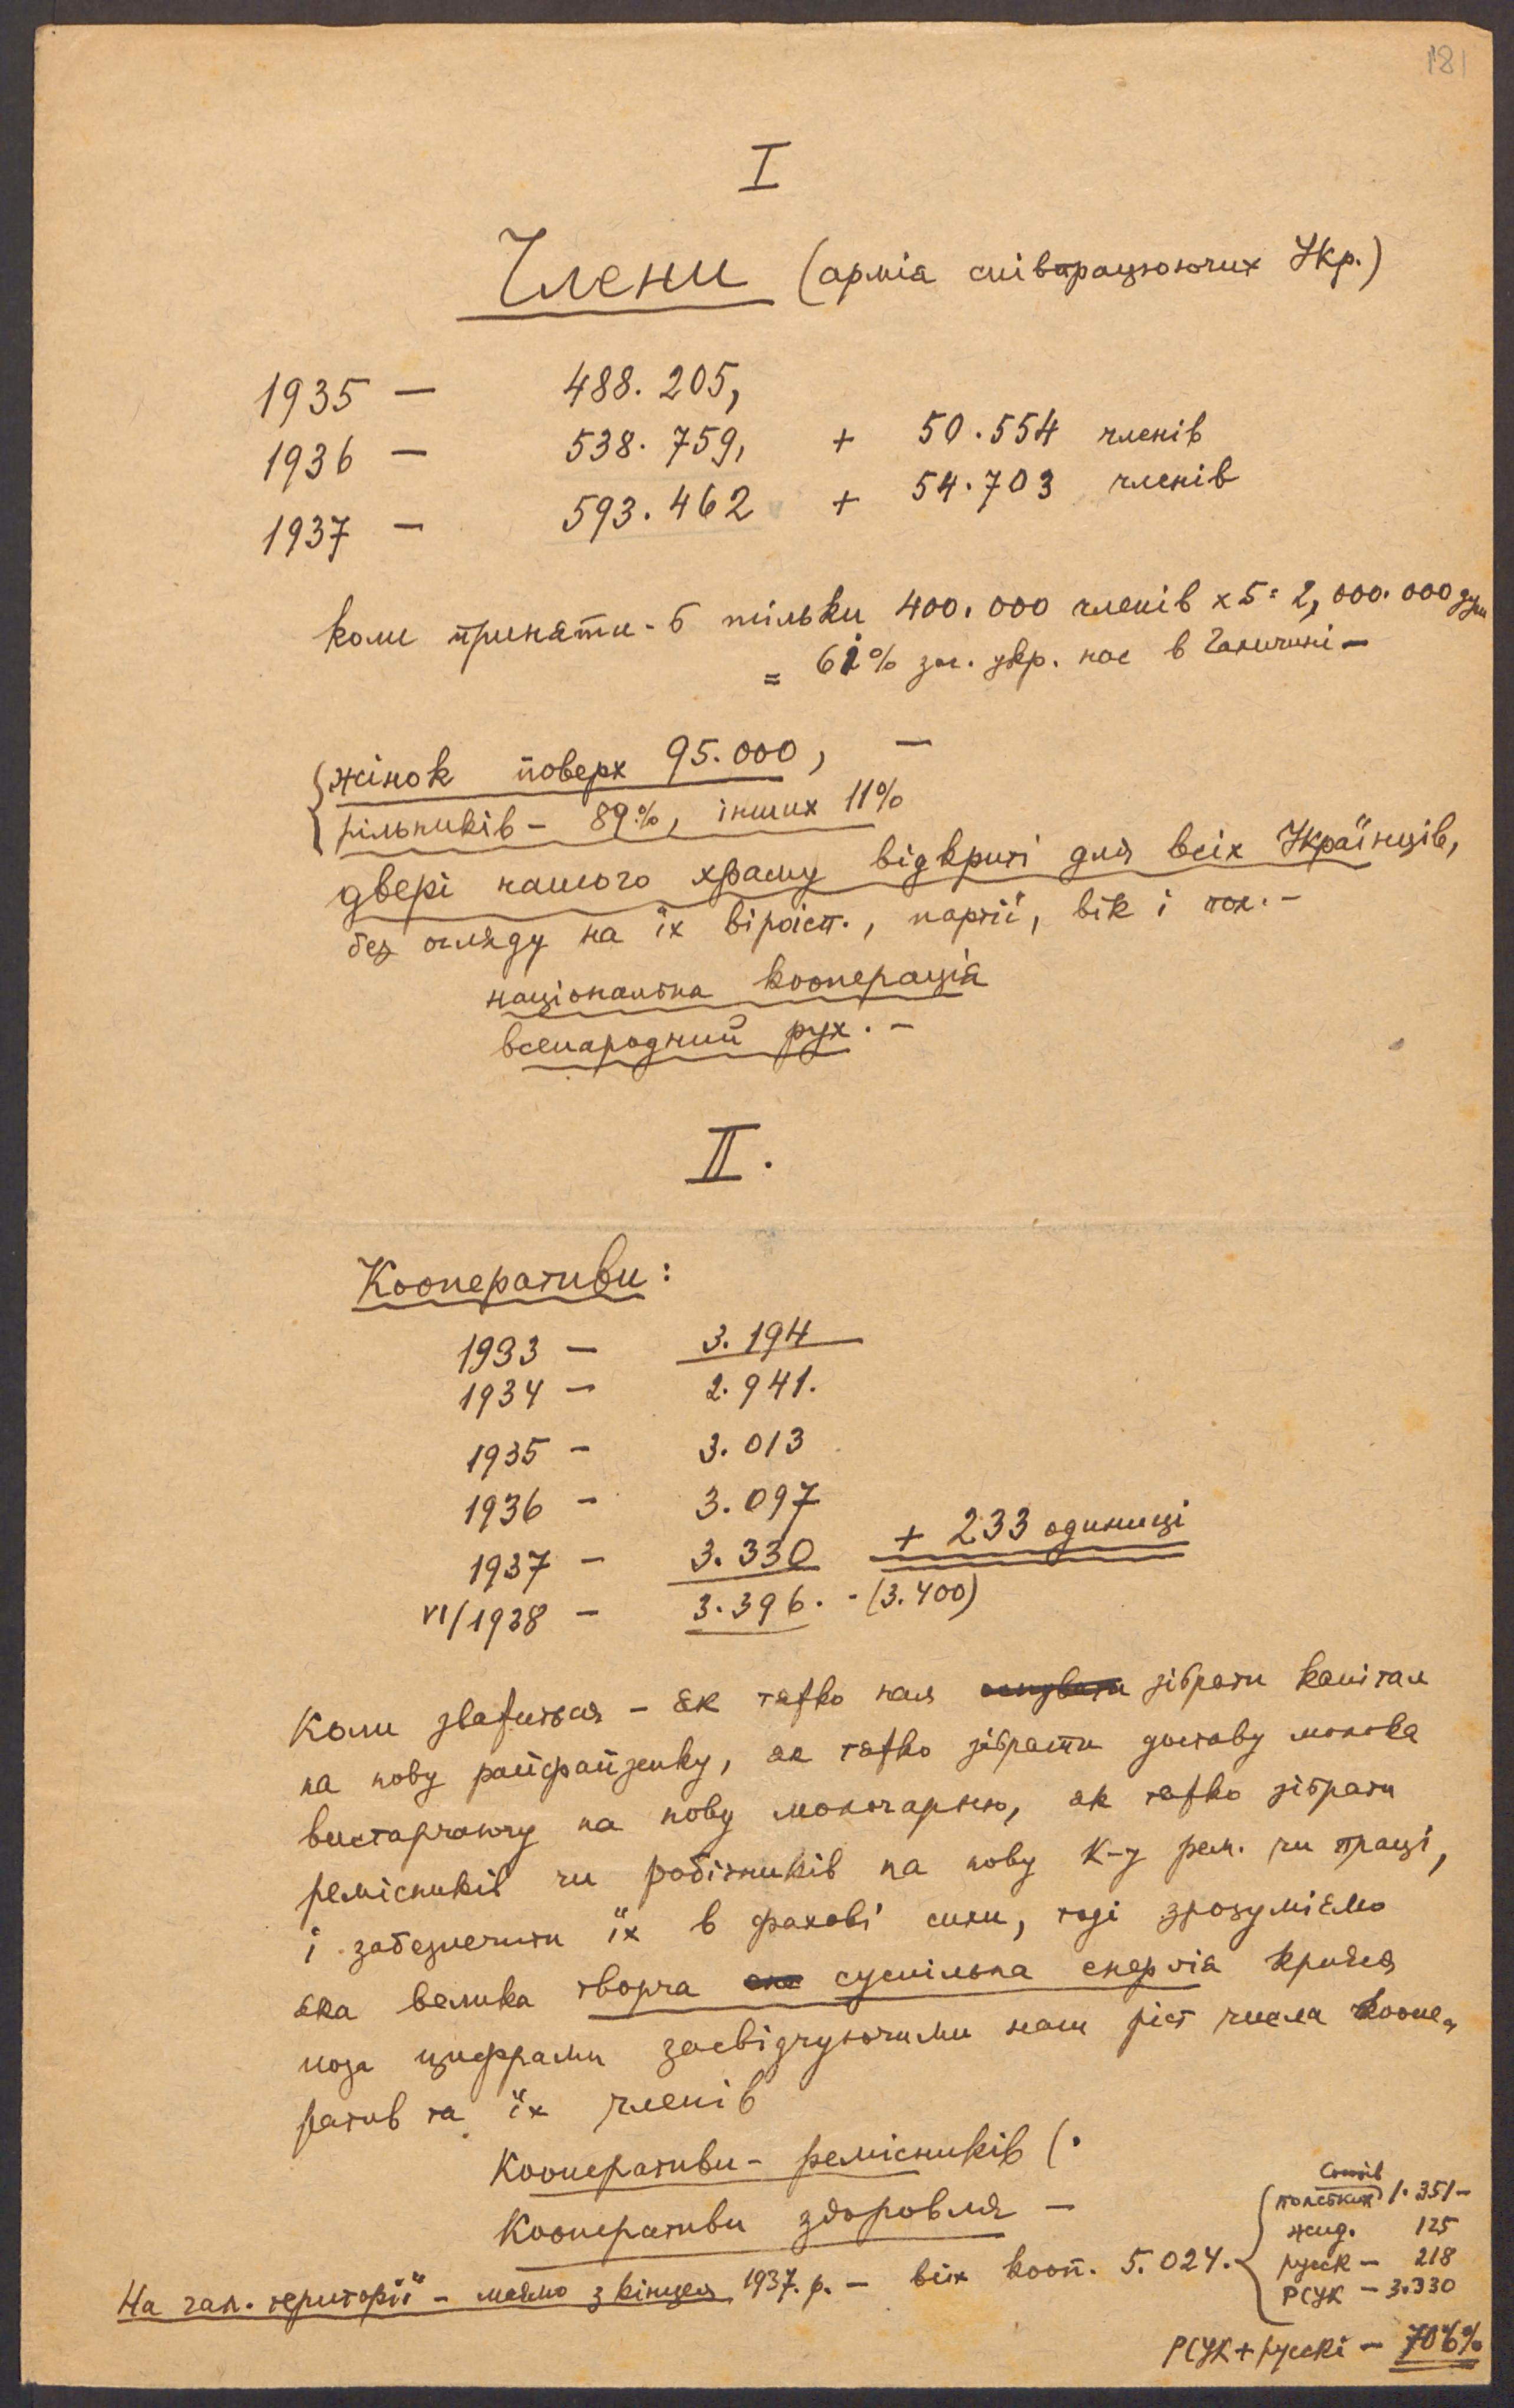 181
I
Члени (армія співпрацюючих Укр.)
1935 — 488.205,
1936 — 538.759, + 50.554 членів
1937 — 593.462 + 54.703 членів
коли приняти-б тільки 400.000 членів x 5 = 2,000.000 душ
= 61% заг. укр. нас в Галичині —
жінок поверх 95.000, —
рільників — 89%, інших 11%
двері нашого храму відкриті для всіх Українців,
без огляду на їх віроісп., партії, вік і пол. —
національна кооперація
всенародний рух. —
II.
Кооперативи:
1933 — 3.194
1934 — 2.941.
1935 — 3.013
1936 — 3.097
1937 — 3.330 + 233 одиниці
VI/1938 — 3.396. - (3.400)
Коли зважиться — як тяжко нам зібрати капітал
на нову райфайзенку, як тяжко зібрати доставу молока
вистарчаючу на нову молочарню, як тяжко зібрати
ремісників чи робітників на нову к-у рем. чи праці,
і забезпечити їх в фахові сили, тоді зрозуміємо
яка велика творча суспільна енергія криється
поза цифрами засвідчуючими нам ріст числа коопе-
ратив та їх членів
Кооперативи — ремісників (.
Кооперативи здоровля —
На гал. території — маємо з кінцем 1937. р. — всіх кооп. 5.024.
польських 1.351 —
жид. 125
руск — 218
РСУК — 3.330
РСУК + рускі — 70%